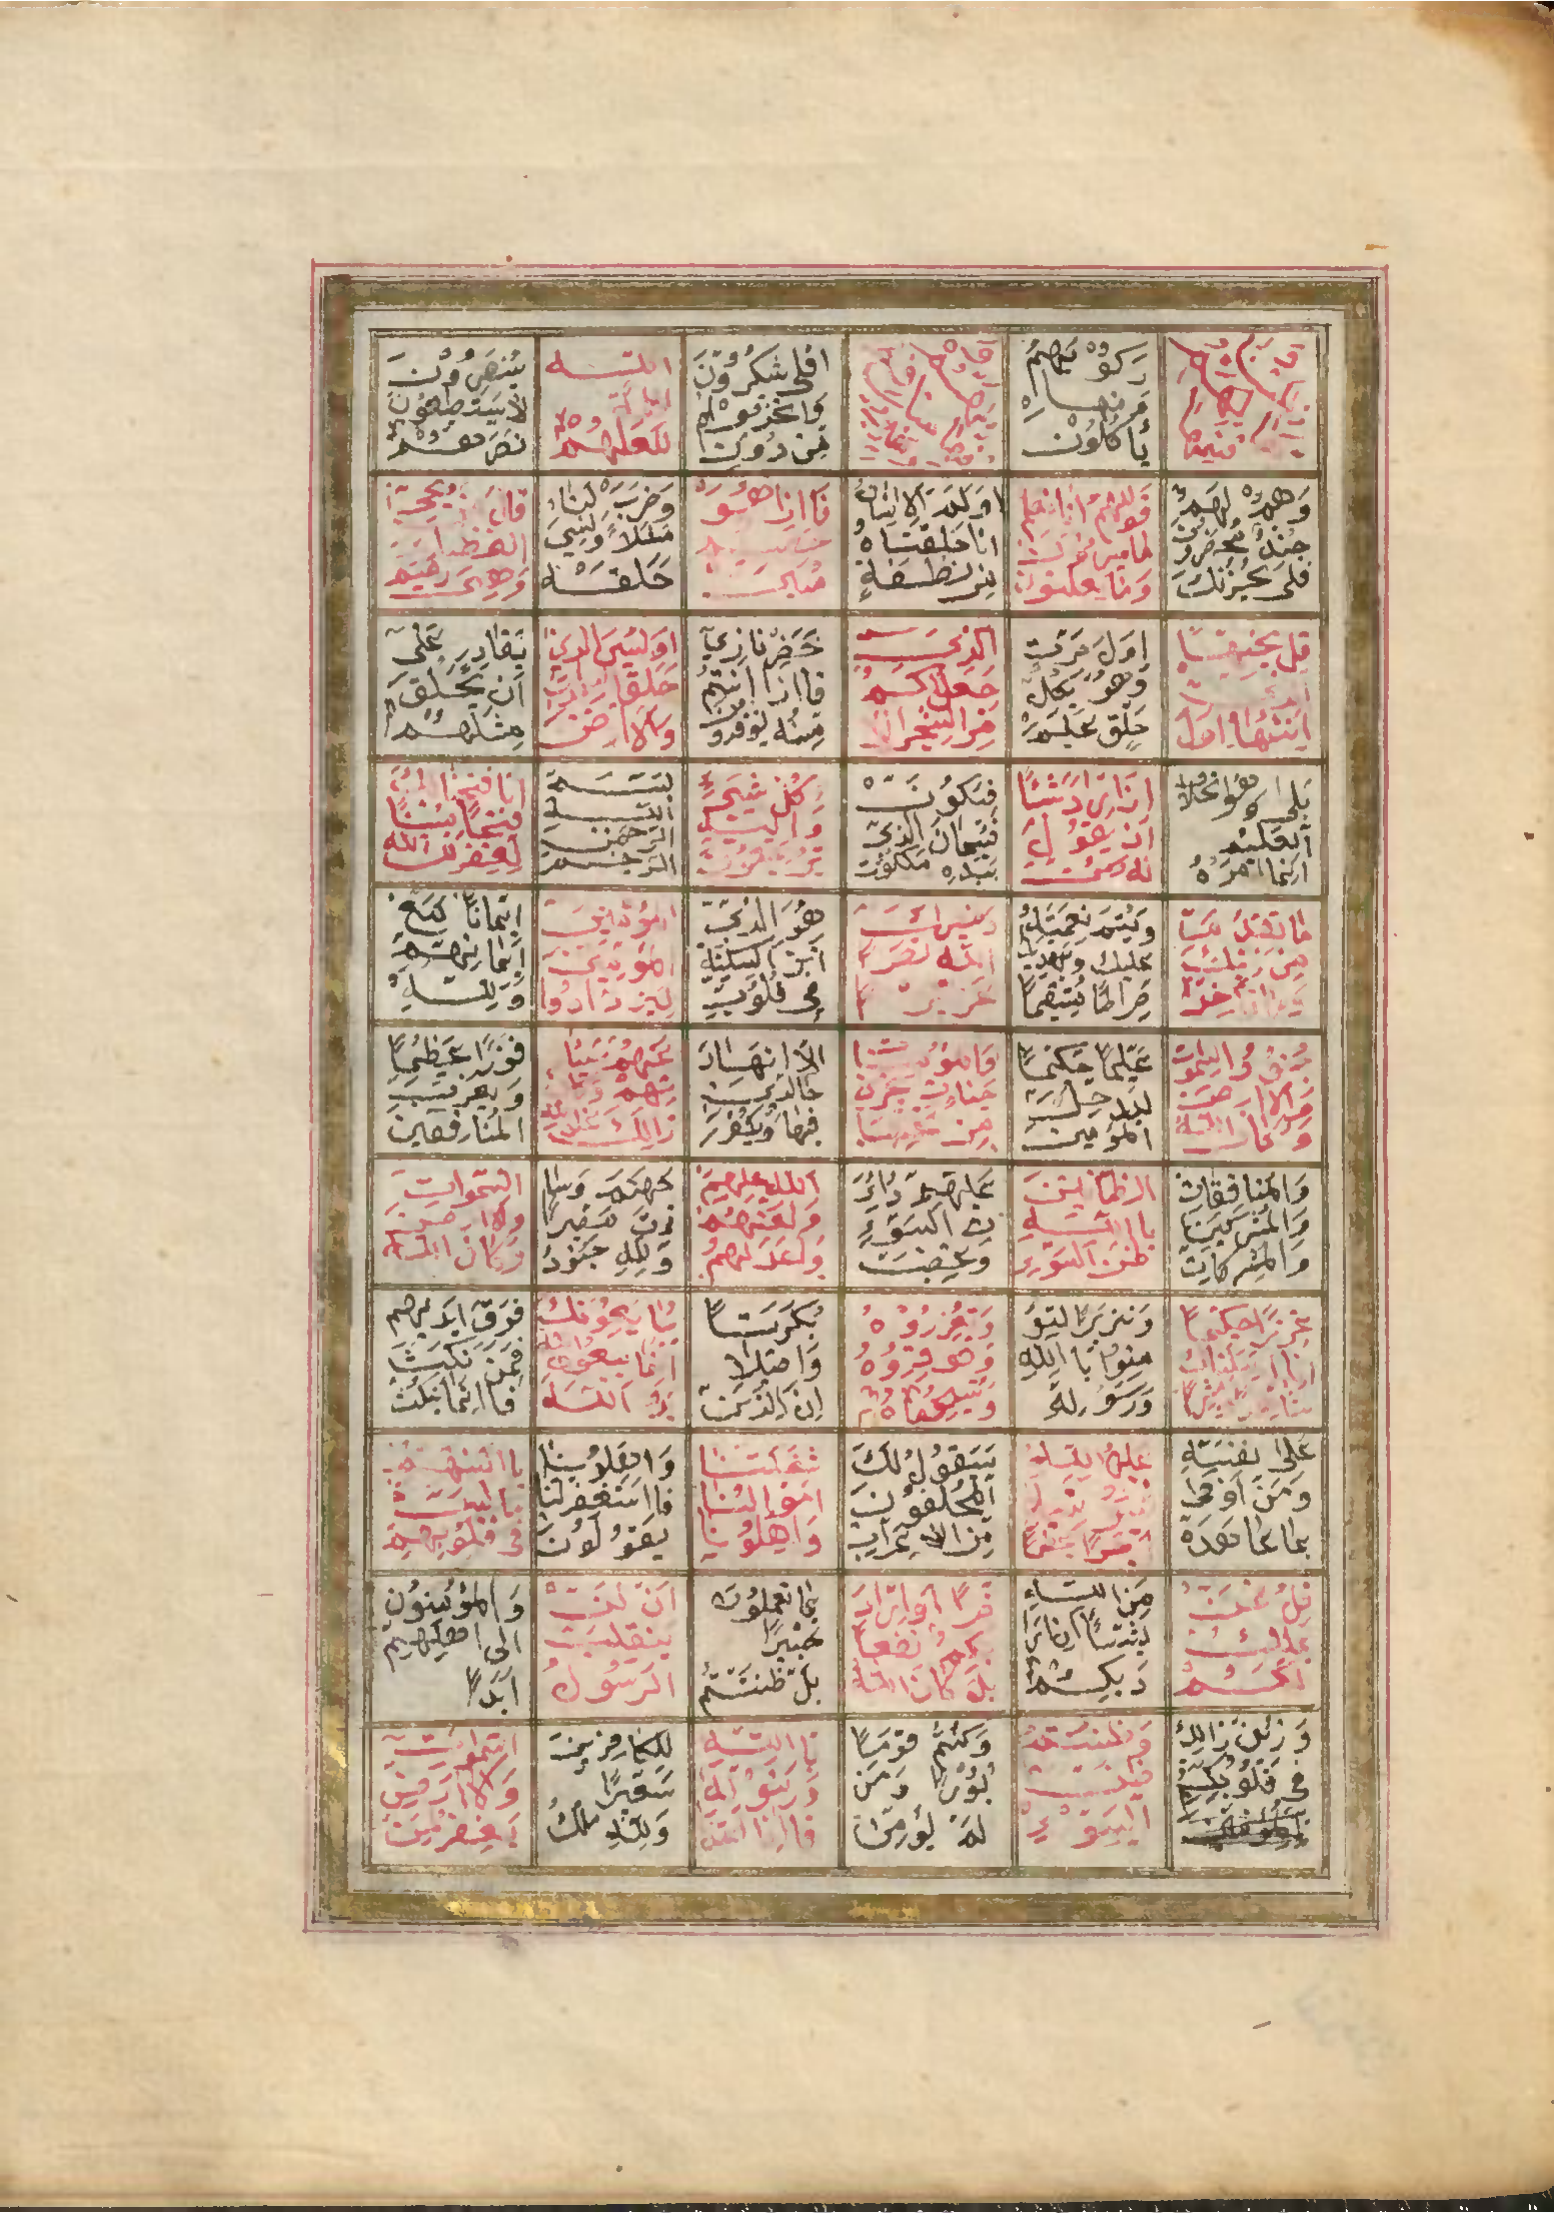 رَكوُبُهُمْ
وَمِنهَا
يَأكُلُونَ
افلى شكرُوُنَ
وَاتخذمِوا
مِن دُوُنِ
اللَّه
اٰلهَةً
لَعَلهُمْ
يُنْصَروُنَ
لاَ يَستَطيعُونَ
نَصرَهُمْ
وَهُمْ لهَمْ
جُندٌ مُحضَرُونَ
فلَى يحُزنكَ
قَولهُمْ انا نعلم
ما يسرُونَ
وَمَا يعلنوُنَ
اوَلمَ يَرالاِنسَانُ
انا خلقناهُ
مِن نطفةٍ
فَااِذا هُوَ
خصيم
مُبين
وَضَرَبَ لنَا
مثلاً وَنَسِيَ
خَلقَهُ
قَالَ مَن يحُيِى
العظامَ
وَهِىَ رَميم
قل يحُييهَا
الذى
اَنشَاهَا اوَل
اوَلَ مَرةٍ
وَهُوَ بِكلِّ
خَلقٍ عَليمْ
الذى
جَعَلَ لكمْ
مِنَ الشجَرِ الا
خضَرِ نَارًا
فااذا انتمُ
مِنهُ توُقدوُن
اوَليَسَ الذى
خَلقَ السموات
وَالاَرضَ
بقَادِرٍ عَلىَ
اَن يَخلُقَ
مِثلَهُمْ
بَلى وَهُوَ الخلاق
اَلعَليم
اِنمَا امرُهُ
اِذا اَرَادَ شيئًا
ان يَقوُلَ
لهُ كنْ
فيَكوُنَ
فَسُبحانَ الذِى
بِيَدِهِ مَلكوُت
كُلِّ شيءٍ
وَاليهِ
ترجعون
بِسْمِ
اللهِ
الرّحمنِ
الرّحيمِ
انا فتحنا لكَ
فتحاً مُبينًا
ليغفِرَ لكَ الله
ما تقدَّمَ
مِن ذنبكَ
وَما تاخرَ
وَيُتمَ نعِمَتهُ
عليكَ وَيهديَكَ
صِراطًا مُستقيمًا
وَينصركَ
الله نصرًا
عَزيزًا
هُوَ الذِى
انزلَ السكينة
فِى قُلوُبِ
المُؤمنِينَ
ليزدادُوا
اِيماناً مَعَ
اِيمانِهِمْ
وَللهِ
جُنوُدُ السموات
وَالارض
وَكانَ اللهُ
عَليمًا حَكيمًا
ليُدخِلَ
المُومنِين
وَالمؤمنات
جناتٍ تجرى
مِن تحتِهَا
الاَنهَارُ
خَالدِينَ
فيهَا وَيُكفرَ
عَنهُمْ سَيئا
تهِمْ وَكانَ
ذالكَ عندَ الله
فوزًا عَظيمًا
وَيعذبَ
المُنافقِينَ
وَالمُنافقاتِ
وَالمُشركينَ
وَالمُشركاتِ
الظانِينَ
بااللهِ
ظنَ السَّوءِ
عَليهِمْ دَائرَ
ةُ السَّوْءِ
وَغضِبَ
اللهُ عليهِمْ
وَلعَنهُمْ
وَاعَدَّ لهُمْ
جَهنمَ وَسا
ءَت مَصِيراً
وَلِلهِ جنوُدُ
السَّموَاتِ
وَالارض
وَكانَ اللهُ
عزيزًا حكيمًا
اِنا ارسَلناكَ
شاهدًا وَمُبشرًا
وَنَذيرًا لتؤ
مِنوُا بااللهِ
وَرَسُولهِ
وَتعُزرُوُهُ
وَتوُقِرُوُهُ
وَتُسَبحُوُهُ
بُكرَةً
وَاصيلا
اِنَ الذِينَ
يُبَايعُوُنكَ
انما يُبايعُونَ الله
يَدُ الله
فَوقَ ايَديهِم
فمَن نَكثَ
فااِنما يَنكُثُ
عَلى نَفسِهِ
وَمَن أَوفى
بِما عَاهَدَ
عليهُ اللهَ
فسيؤتيهِ
اَجرًا عظيمًا
سَيقُولُ لَكَ
المُخلفُونَ
مِنَ الاعرَابِ
شغَلتنا
اموَالنا
وَاهلوُنا
وَاهلوُنا
فااستغفرلنا
يَقوُلوُنَ
باالسِنتهِمْ
مَا ليسَ
فى قلوُبهِمْ
قلْ فمن
يملكُ
لكُمْ
مِنَ اللهِ
شيئًا ان ارَادَ
بكمْ
ضرًا اوارَادَ
بكمْ نفعاً
بلْ كانَ اللهُ
بمَا تعمَلوُنَ
خبيرًا
بلْ ظننتمُ
اَنْ لنْ
ينقلبَ
الرَسُولُ
وَالمُؤمِنوُنَ
الى اهليهِمْ
اَبَدًا
وَزُينَ ذالكَ
فى قلُوُبكُمْ
وَظننتمْ
ظنَ
السَّوْءِ
وَكُنتُمْ قومًا
بُورًا وَمَن
لمْ يُؤمِنْ
بااللهِ
وَرَسُولهِ
فااِنا اعتدنا
للِكافِرينَ
سَعيرًا
وَلِلهِ مُلكُ
السموَاتِ
وَالارَض
يَغفِرُ لِمَن